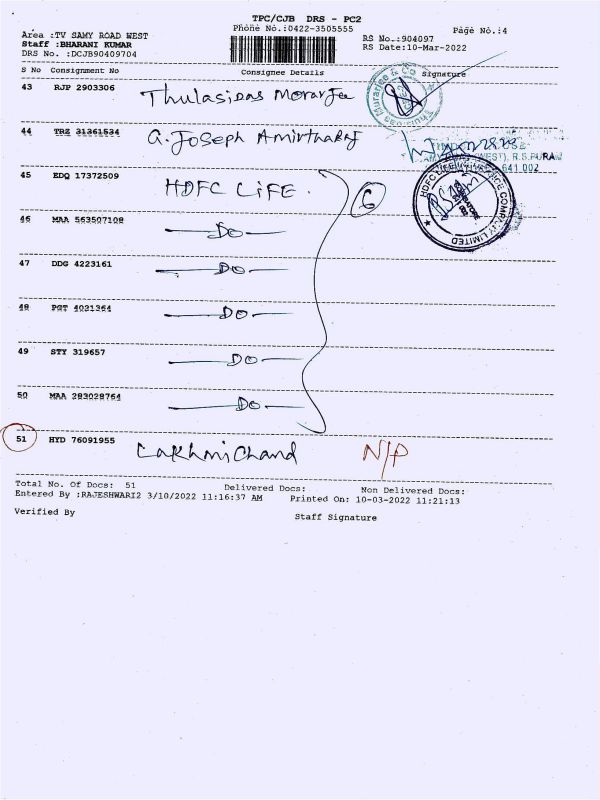 TPC/CJB DRS - PC2
Phone No.:0422-3505555
Page No.:4
Area :TV SAMY ROAD WEST
Staff :BHARANI KUMAR
DRS No. :DCJB90409704
RS No.:904097
RS Date:10-Mar-2022
S No Consignment No Consignee Details Signature
43 RJP 2903306 Thulasidas Morarjee
44 TRZ 31361534 A. Joseph Amirtharaj
R.S.PURAM
641 002
45 EDQ 17372509 HDFC LIFE . 6
46 MAA 563507108 DO
47 DDG 4223161 DO
48 PGT 4021364 DO
49 STY 319657 DO
50 MAA 283028764 DO
51 HYD 76091955 Lakhmichand N/P
Total No. Of Docs: 51 Delivered Docs: Non Delivered Docs:
Entered By :RAJESHWARI2 3/10/2022 11:16:37 AM Printed On: 10-03-2022 11:21:13
Verified By Staff Signature